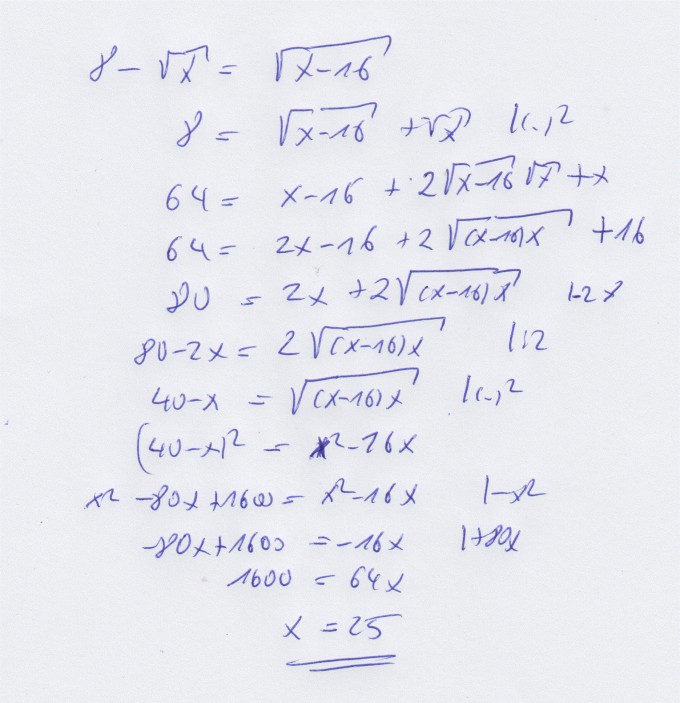 8 - √x = √(x-16)
8 = √(x-16) + √x |(..)²
64 = x-16 + 2√(x-16) √x + x
64 = 2x-16 + 2√((x-16)x) +16
80 = 2x + 2√((x-16)x) |-2x
80-2x = 2√((x-16)x) |:2
40-x = √((x-16)x) |(..)²
(40-x)² = x²-16x
x² -80x+1600 = x²-16x |-x²
-80x+1600 = -16x |+80x
1600 = 64x
x = 25